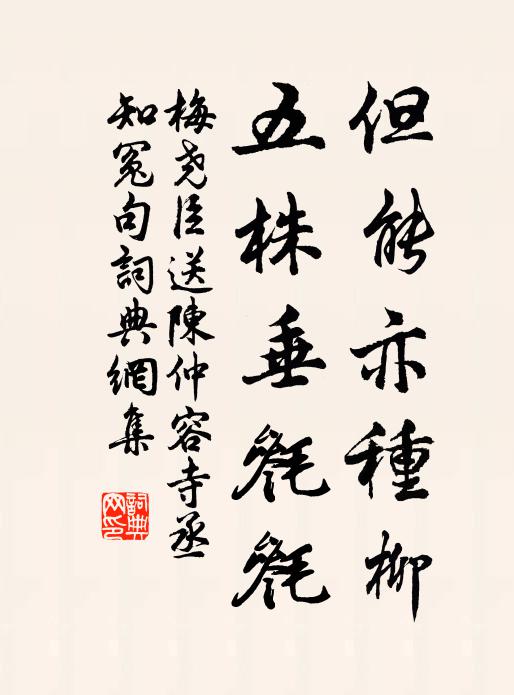 但能亦種柳
五株垂毿毿
梅堯臣送陳仲容寺丞
知冤句詞典網集
詞典網印